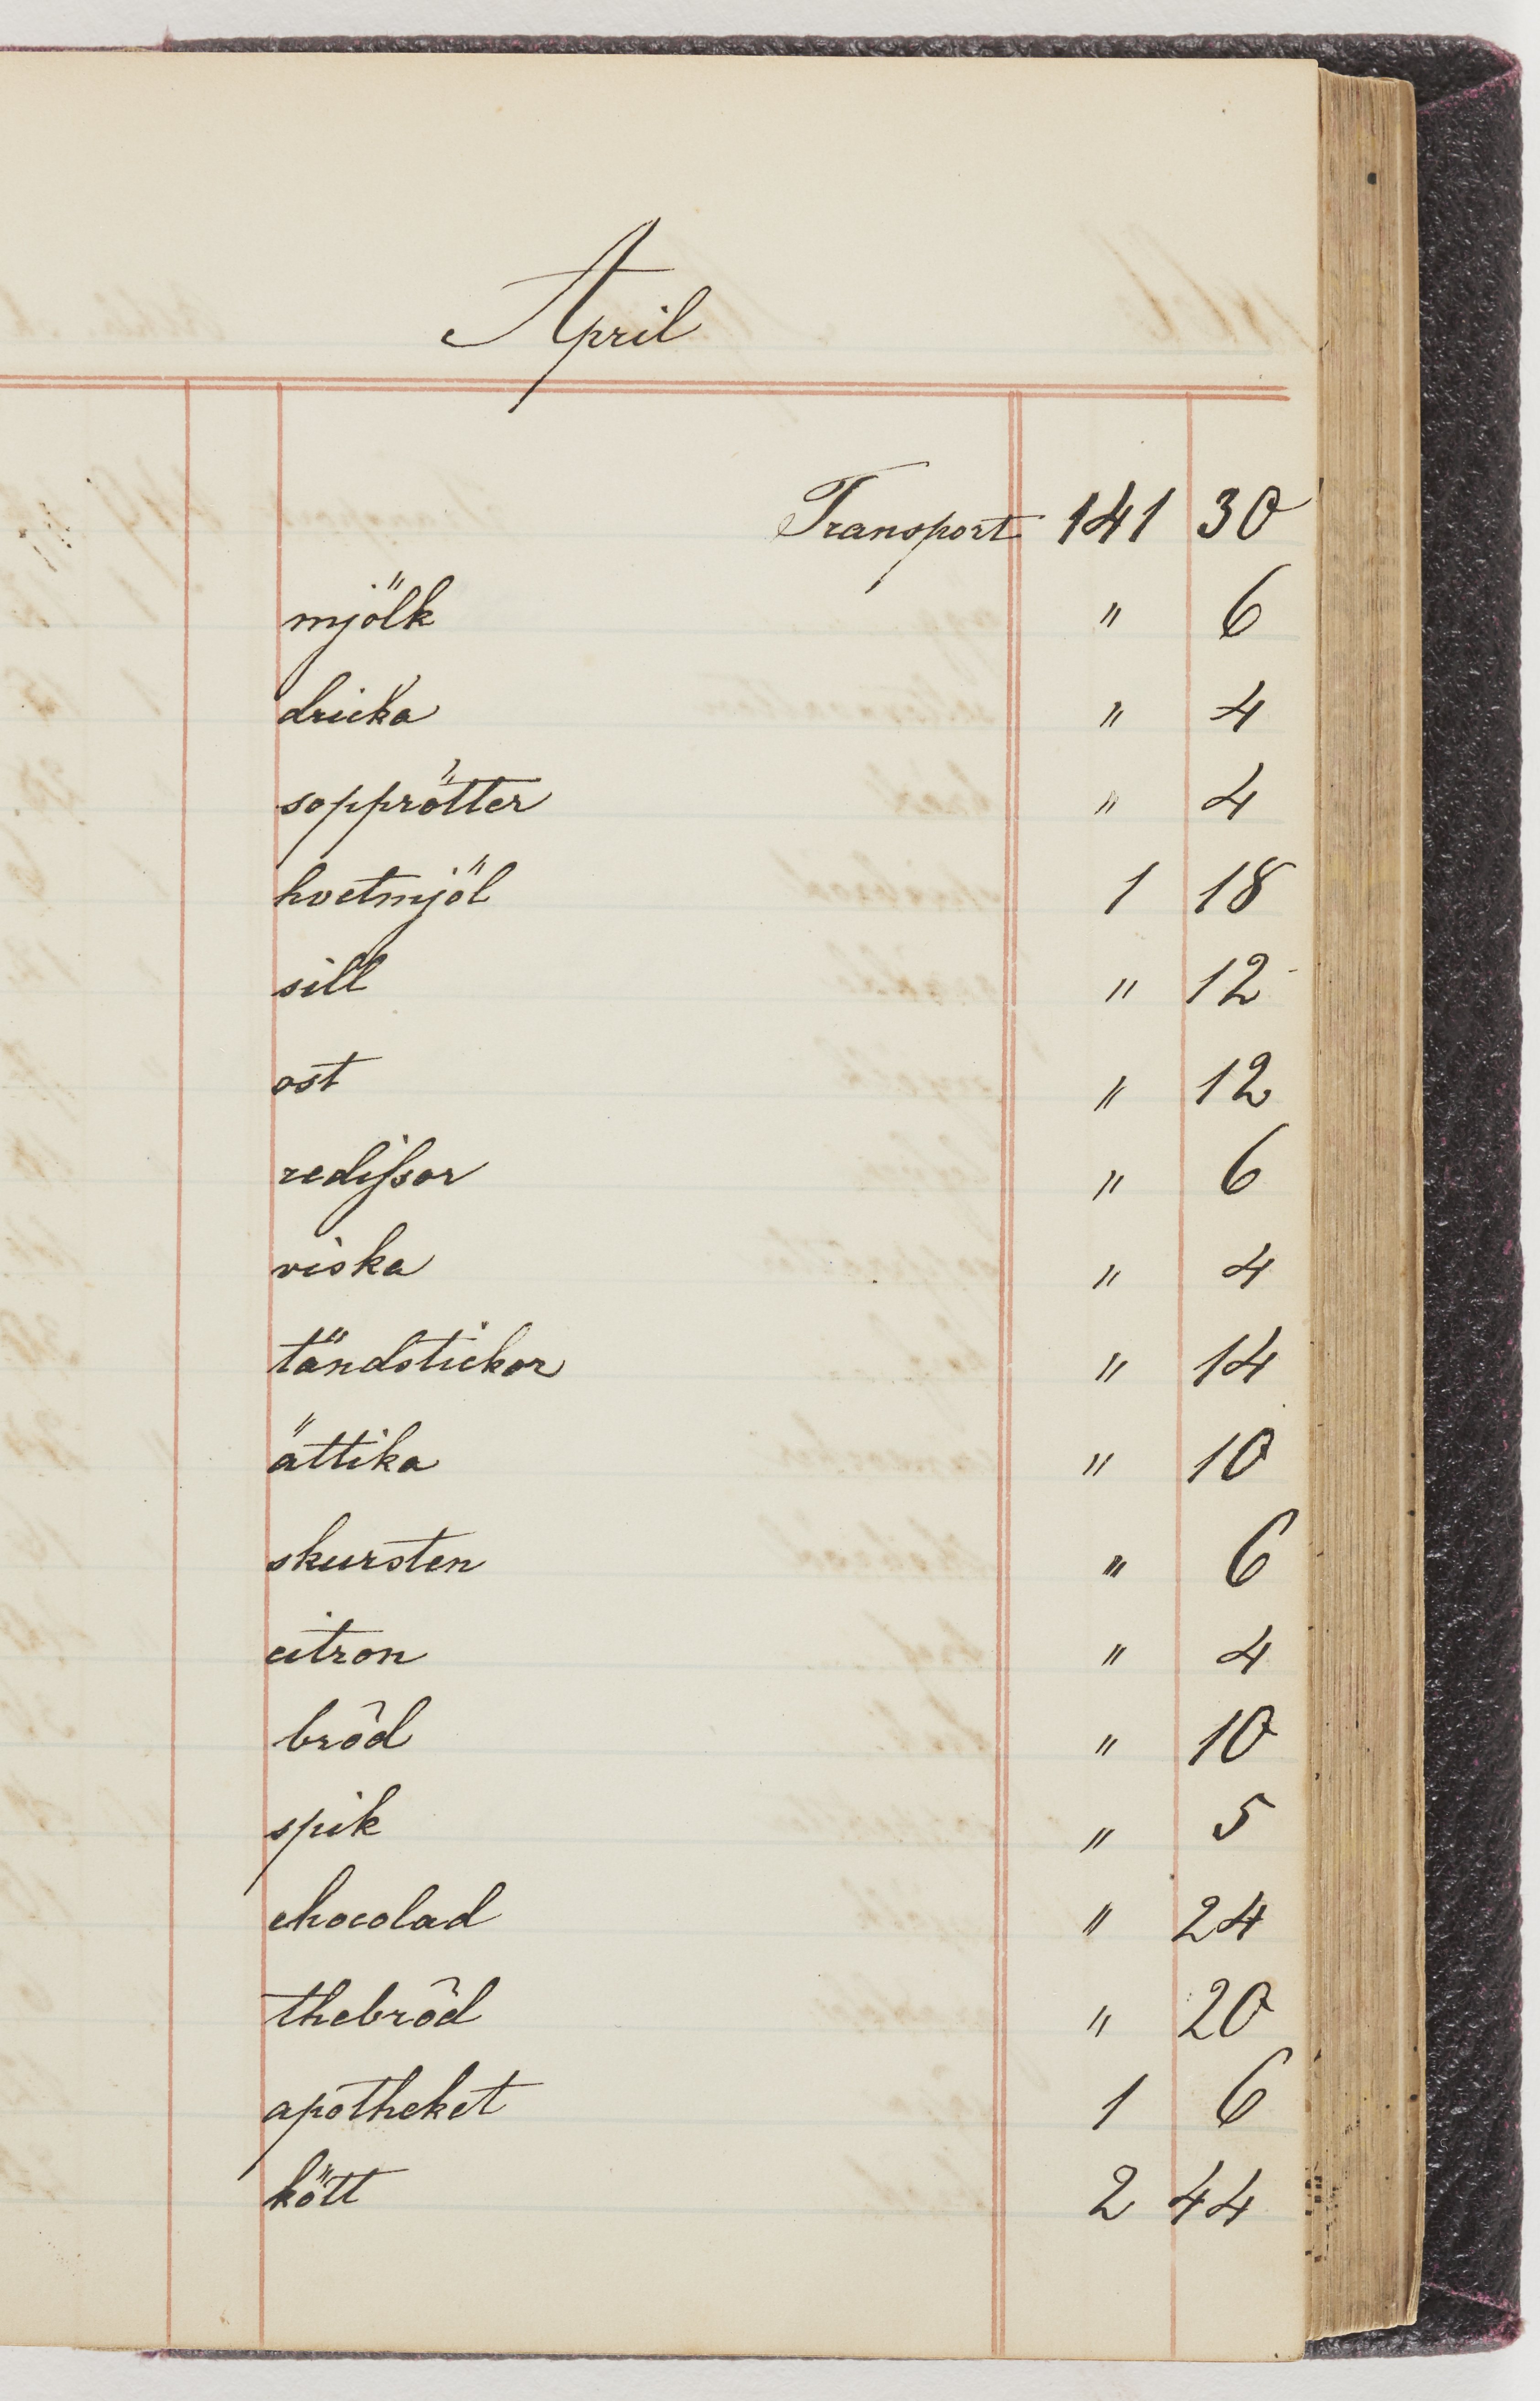 April
Transport 141 30
mjölk " 6
dricka " 4
sopprötter " 4
hvetmjöl 1 18
sill " 12
ost " 12
redissor " 6
viska " 4
tändstickor " 14
ättika " 10
skursten " 6
citron " 4
bröd " 10
spik " 5
chocolad " 24
thebröd " 20
apotheket 1 6
kött 2 44